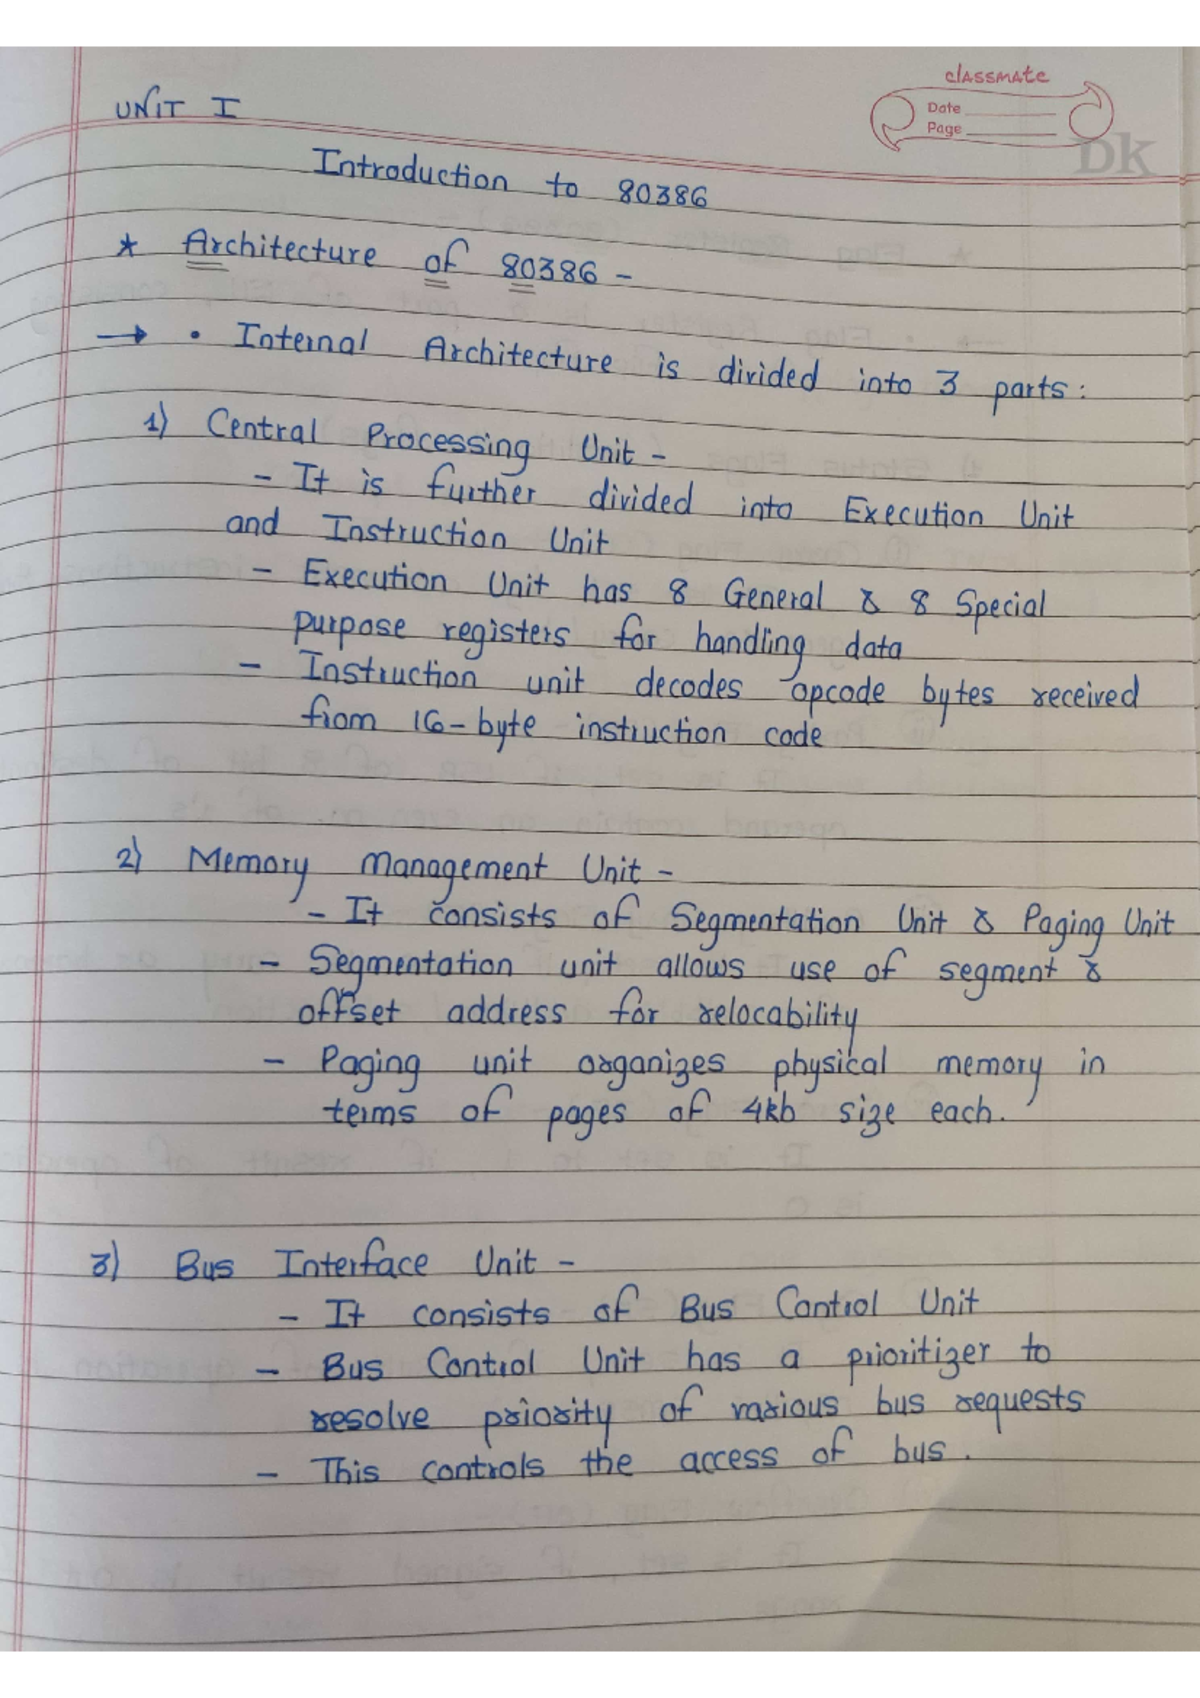 classmate
Date
Page
Dk
UNIT I
Introduction to 80386
* Architecture of 80386 -
→ • Internal Architecture is divided into 3 parts:
1) Central Processing Unit -
- It is further divided into Execution Unit
and Instruction Unit
- Execution Unit has 8 General & 8 Special
purpose registers for handling data
- Instruction unit decodes opcode bytes received
from 16-byte instruction code
2) Memory Management Unit -
- It consists of Segmentation Unit & Paging Unit
- Segmentation unit allows use of segment &
offset address for relocability
- Paging unit organizes physical memory in
terms of pages of 4kb size each.
3) Bus Interface Unit -
- It consists of Bus Control Unit
- Bus Control Unit has a prioritizer to
resolve priority of various bus requests
- This controls the access of bus.